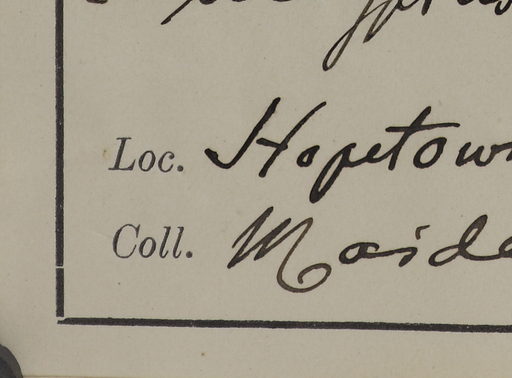 Loc. Hopetow
Coll. Maide